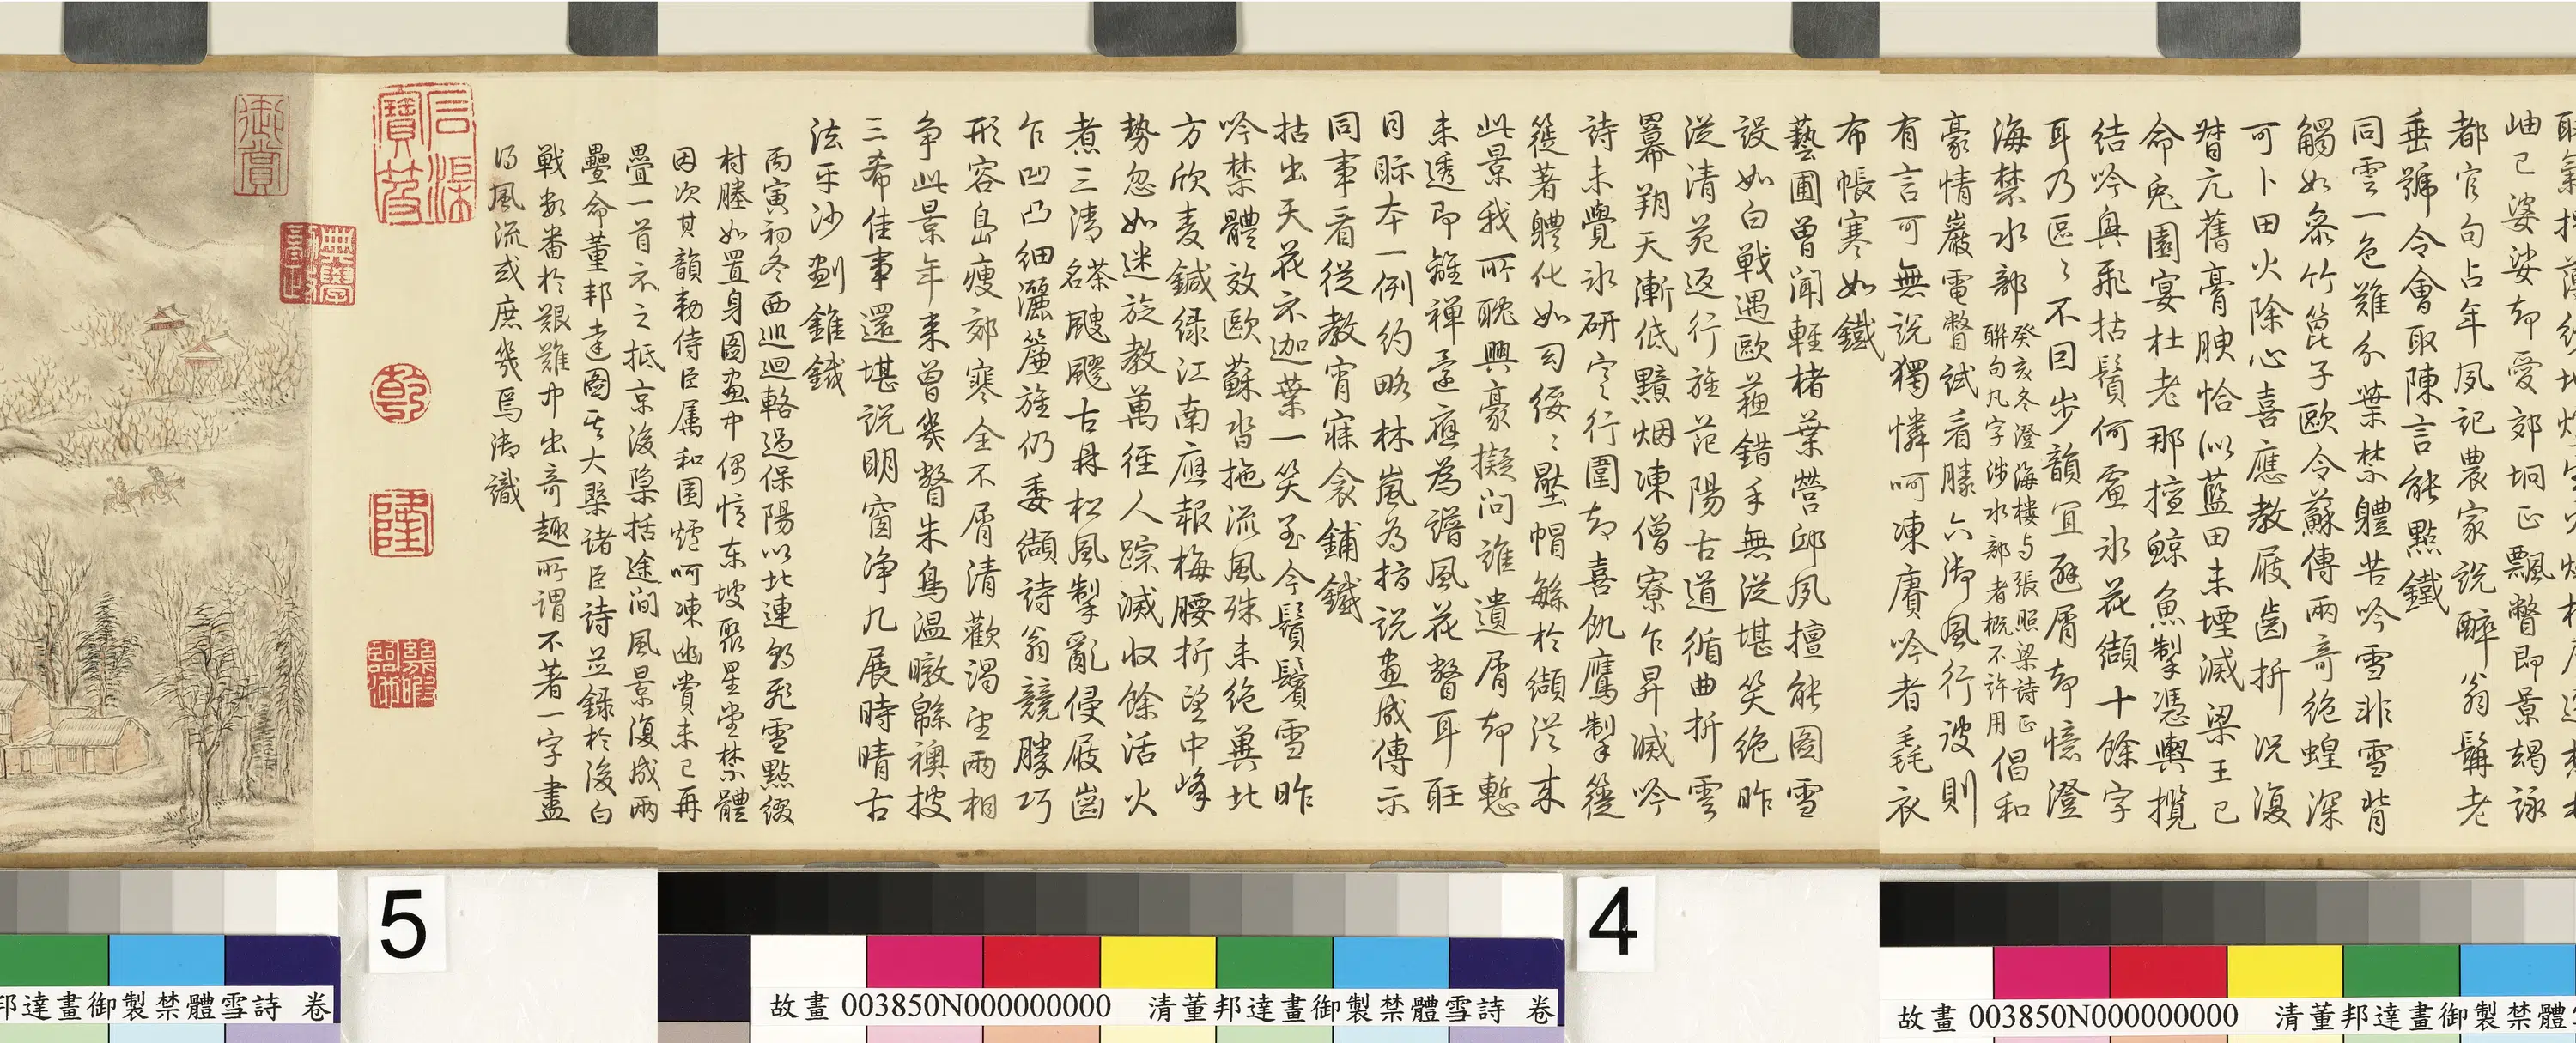 岫已婆娑却愛郊坰正飄瞥即景竭詠
都官句占年夙記農家說醉翁髯老
垂號令會取陳言能點鐵
同雲一色難分葉禁體苦吟雪非雪背
觸如叅竹篦子歐令蘇傳兩奇絕蝗深
可卜田火除心喜應教屐齒折況復
替亢舊膏腴恰似藍田未堙滅梁王已
命兎園宴杜老那擅鯨魚掣憑輿攬
結吟興飛拈鬚何處氷花纈十餘字
耳乃區〻不因步韻冝屑却憶澄
海禁水部
癸亥冬澄海樓与張照梁詩正
聯句凡字涉水部者概不許用
倡和
豪情巖電瞥試看滕六御風行詖則
有言可無說獨憐呵凍賡吟者毳衣
布帳寒如鐵
藝圃曾聞輕楮葉營邱夙擅能圖雪
設如白戰遇歐蘓錯手無從堪笑絕昨
從清苑返行旌范陽古道循曲折雲
冪朔天漸低黯烟凍僧寮乍昇滅吟
詩未覺氷研行圍却喜飢鷹掣
著軆化如〻壓帽緜於纈從來
此景我所耽興豪擬問誰遺屑却慙
未透即離禪還應為譜風花瞥耳
目眎本一例約略林嵐為指說畫成傳示
同事看從教宵寐衾鋪鐵
拈出天花示迦葉一笑至今鬚鬢雪昨
吟禁體效歐蘇沓拖流風殊未絕冀北
方欣麦鍼緑江南應報梅腰折望中峰
勢忽如迷旋教萬徑人踪滅收餘活火
煮三清名茶颼飀古井松風掣亂侵屐齒
乍凹凸細灑簾旌仍委纈詩翁競勝巧
形容島瘦郊寒全不屑清歡渴望兩相
争此景年来曾幾瞥朱鳥温暾緜襖披
三希佳事還堪說明窗淨几展時晴古
法平沙劃錐鐵
丙寅初冬西巡迴輅過保陽以北連朝飛雪點綴
村塍如置身圖畫中偶憶東坡聚星堂禁體
因次其韻勅侍臣属和圍爐呵凍幽賞未已再
疊一首示之抵京後檃括途間風景復成兩
疊命董邦達圖其大槩諸臣詩並錄於後白
戰數番於艱難中出奇趣所謂不著一字盡
得風流或庶幾焉御識
信天主人
乾
隆
御賞
5
4
邦達畫御製禁體雪詩 卷
故畫 003850N000000000 清董邦達畫御製禁體雪詩 卷
故畫 003850N000000000 清董邦達畫御製禁體